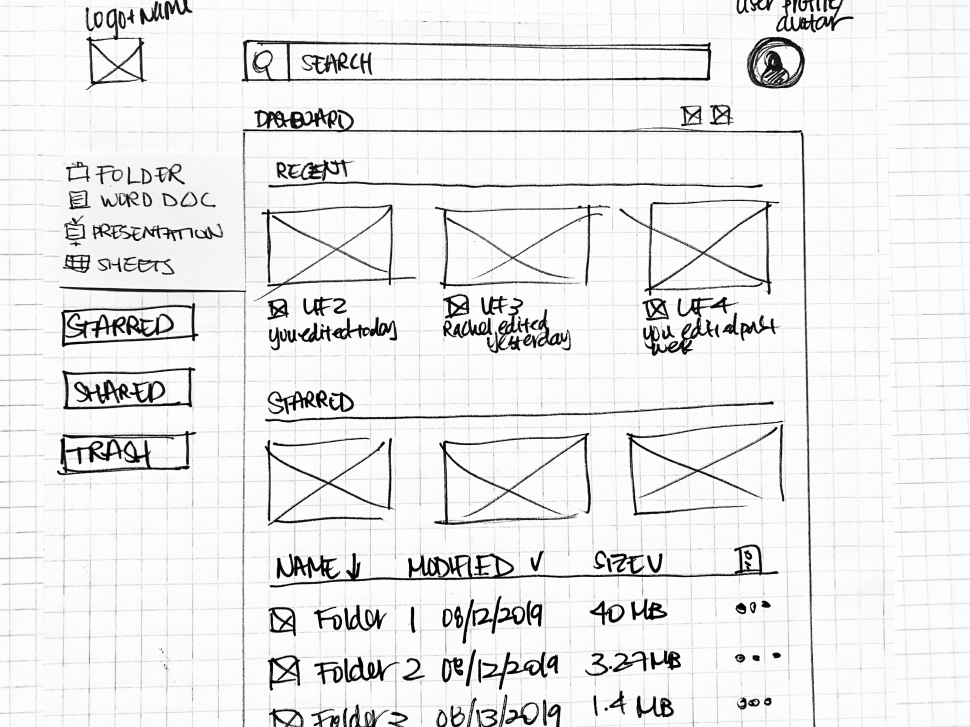 Logo + NAME
User profile/
avatar
SEARCH
DASHBOARD
FOLDER
WORD DOC
PRESENTATION
SHEETS
STARRED
SHARED
TRASH
RECENT
UF2
you edited today
UF3
Rachel edited
yesterday
UF4
you edited past
week
STARRED
NAME ↓ MODIFIED V SIZE V
Folder 1 08/12/2019 40 MB
Folder 2 08/12/2019 3.27MB
Folder 3 08/13/2019 1.4 MB